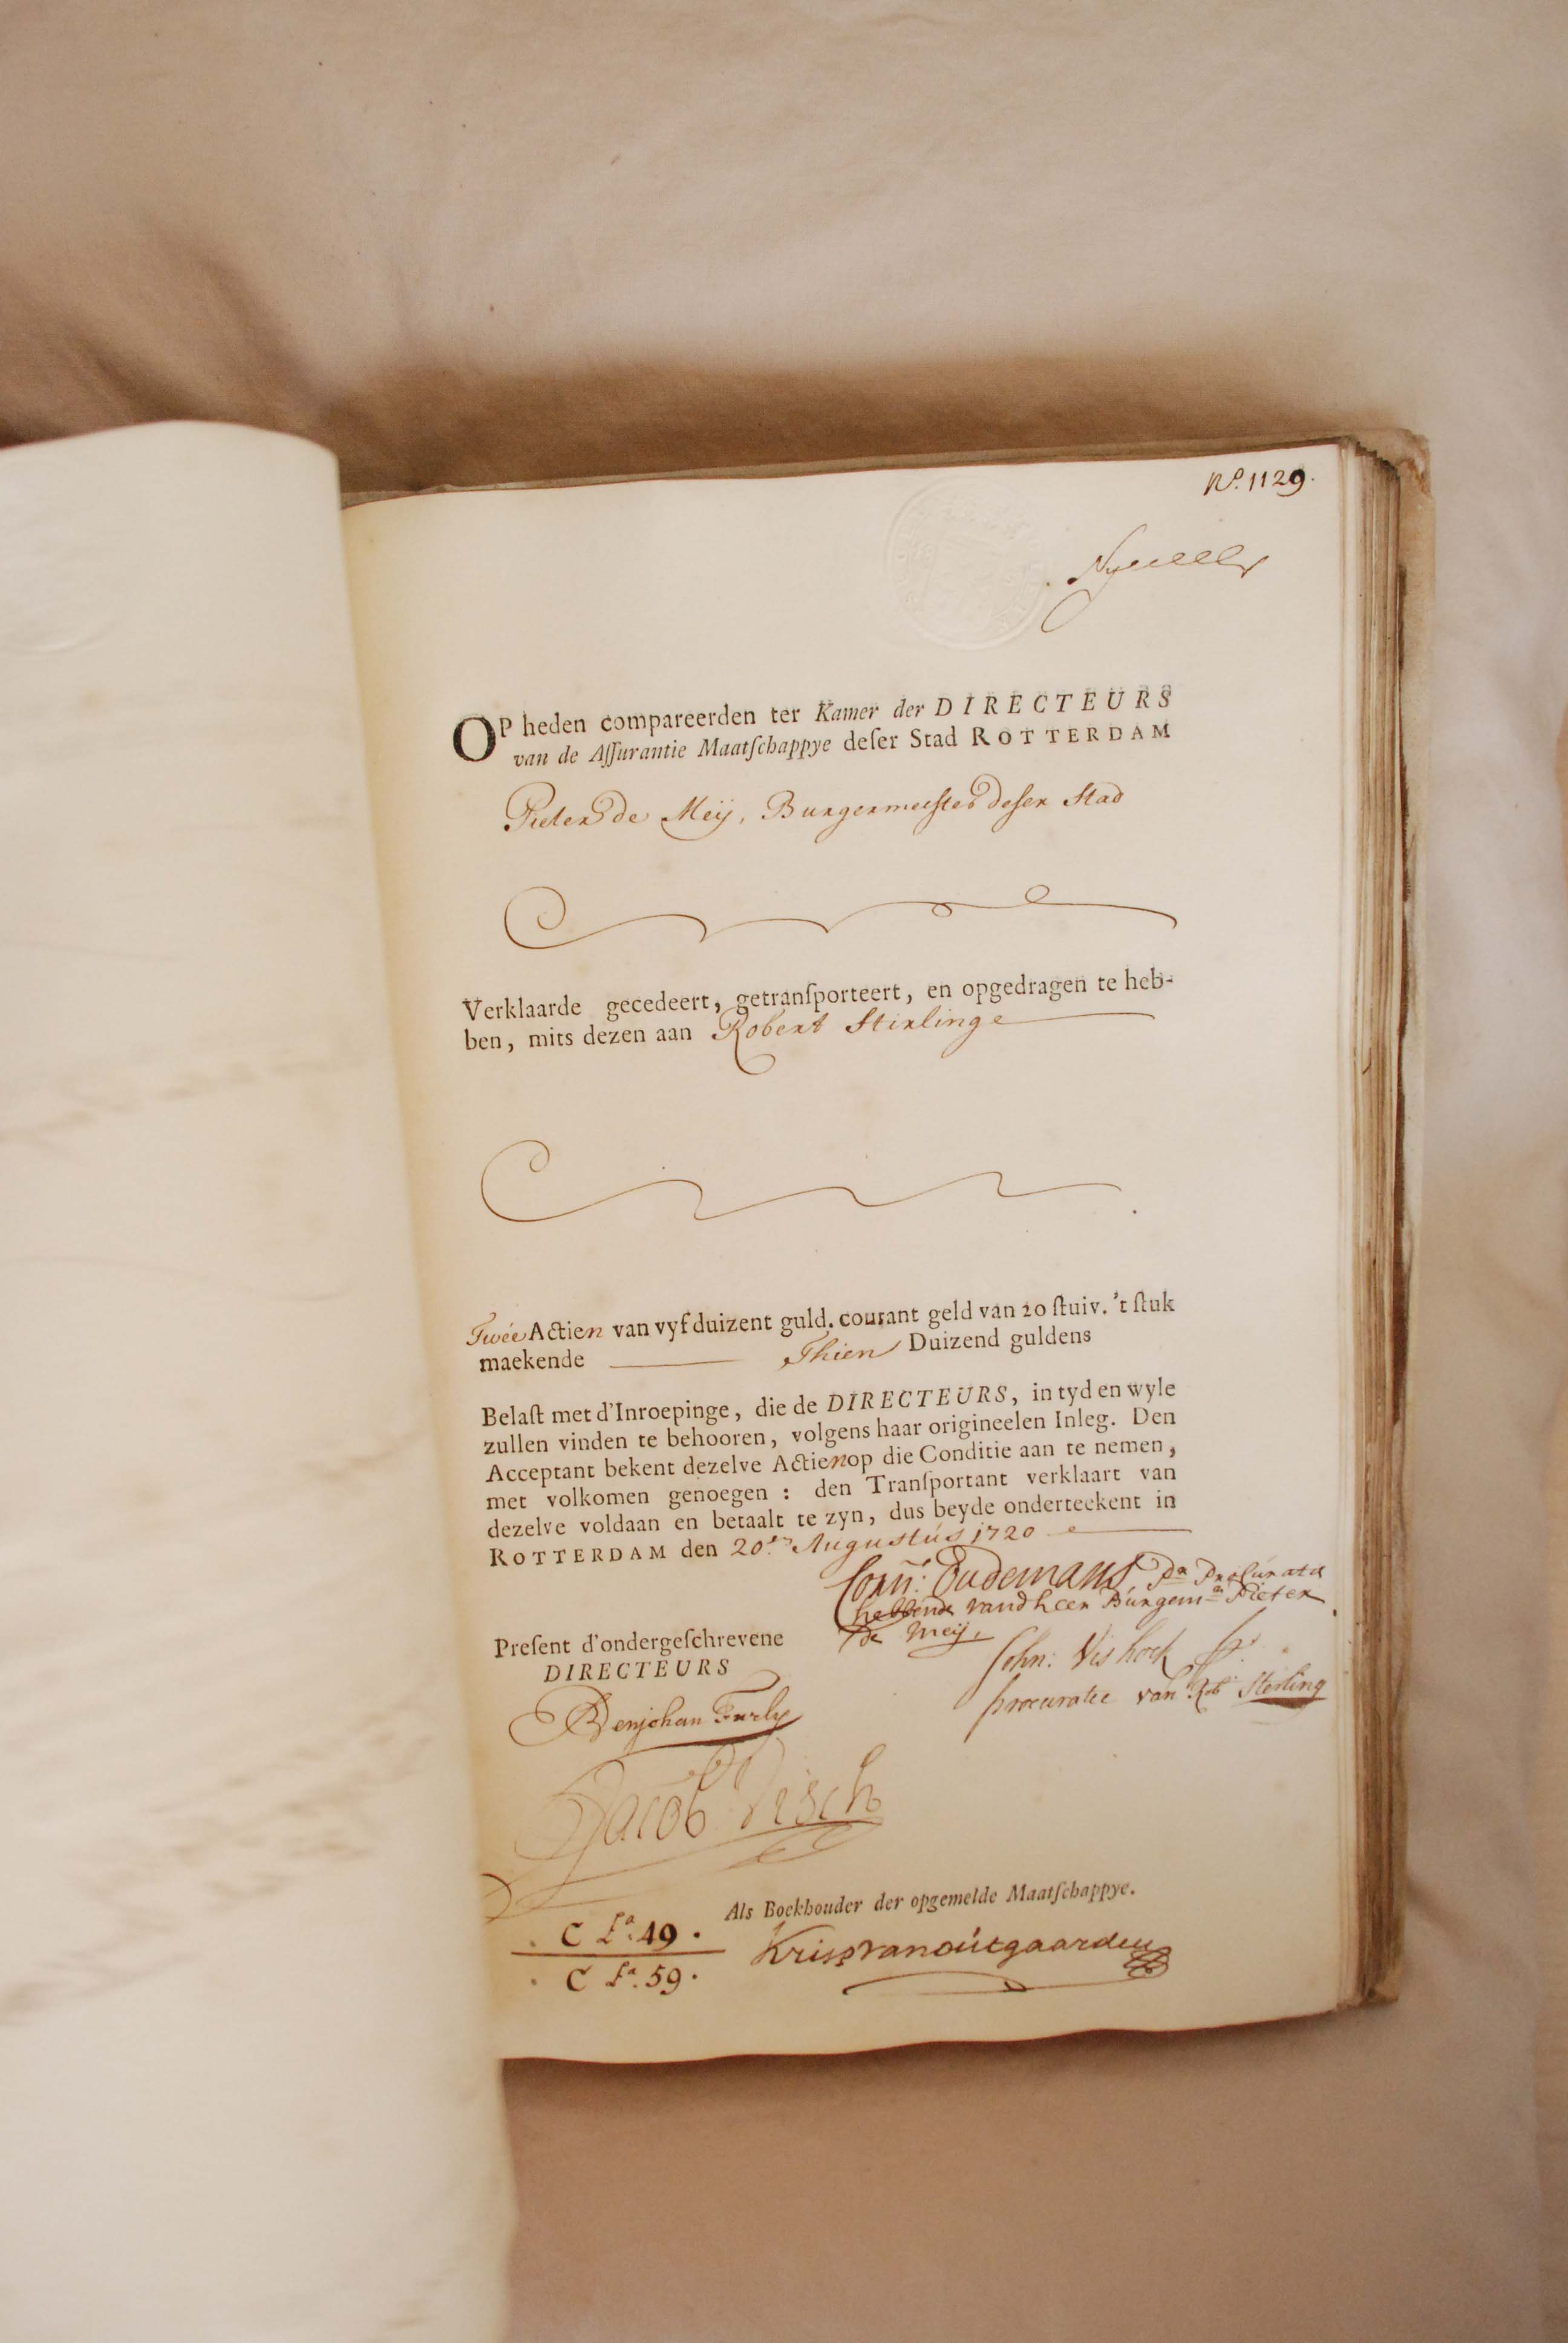 No. 1129.
OP heden compareerden ter Kamer der DIRECTEURS
van de Aſſurantie Maatſchappye deſer Stad ROTTERDAM
Pieter de Meij, Burgermeester deser Stad
Verklaarde gecedeert, getranſporteert, en opgedragen te heb-
ben, mits dezen aan Robert Stirlinge
Twée Actien van vyf duizent guld. courant geld van 20 ſtuiv. 't ſtuk
maekende Thien Duizend guldens
Belaſt met d'Inroepinge, die de DIRECTEURS, in tyd en wyle
zullen vinden te behooren, volgens haar origineelen Inleg. Den
Acceptant bekent dezelve Actien op die Conditie aan te nemen,
met volkomen genoegen : den Tranſportant verklaart van
dezelve voldaan en betaalt te zyn, dus beyde onderteekent in
ROTTERDAM den 20en Augustús 1720
Corn: Oudemans Pr Procúratie
hebbende vand heer Búrgemr Pieter
de Meij,
Preſent d'ondergeſchrevene
DIRECTEURS
John: Vishoek pr
procuratie van Rob Sterling
Benjohan Furly
Jacob Visch
Als Boekhouder der opgemelde Maatſchappye.
C fo. 49.
Kriss van oútgaarden
C fo. 59.